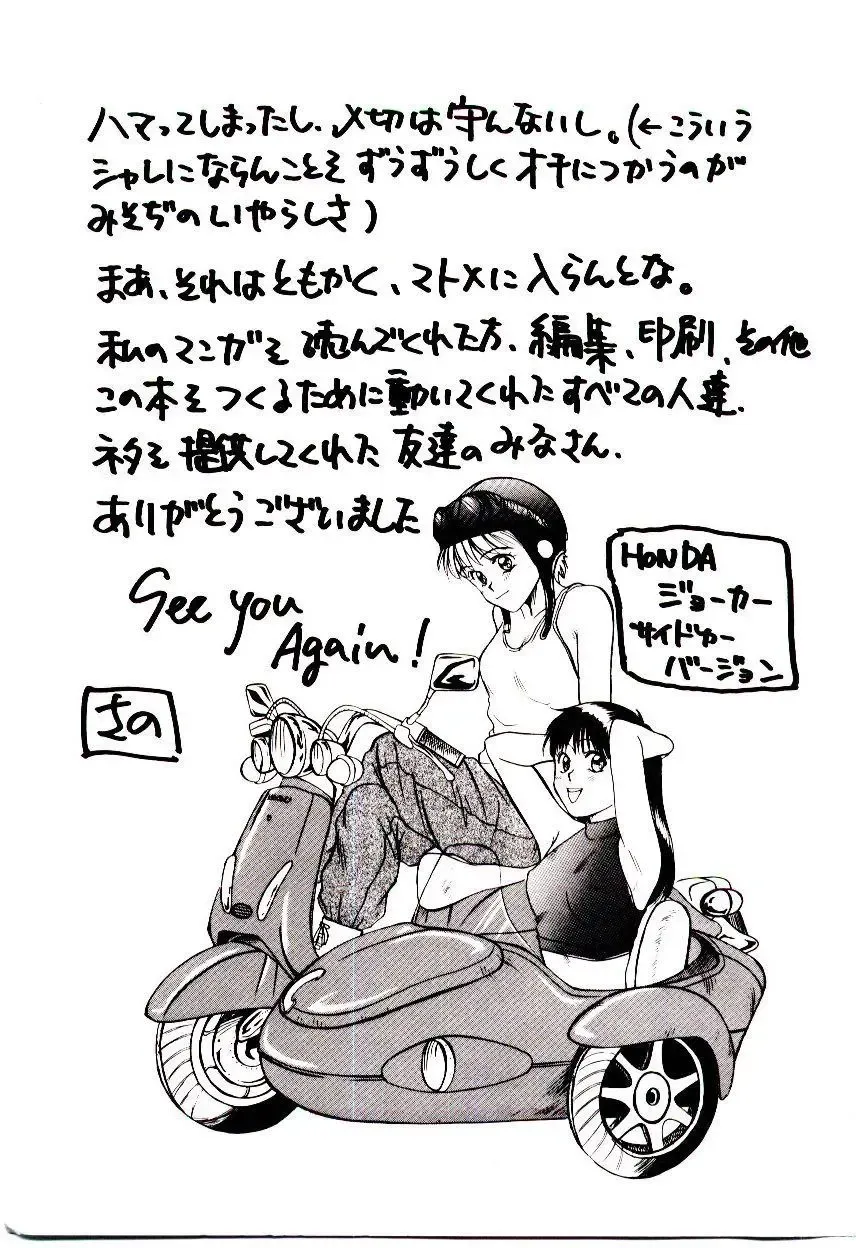 ハマってしまったし、〆切は守んないし。(←こういう
シャレにならんことを ずうずうしく オチにつかうのが
みそぢの いやらしさ)
まあ、それはともかく、マトメに入らんとな。
私のマンガを 読んでくれた方、編集、印刷、その他
この本を つくるために動いてくれたすべての人達、
ネタを 提供してくれた 友達のみなさん、
ありがとうございました
See you
Again!
HONDA
ジョーカー
サイドカー
バージョン
さの